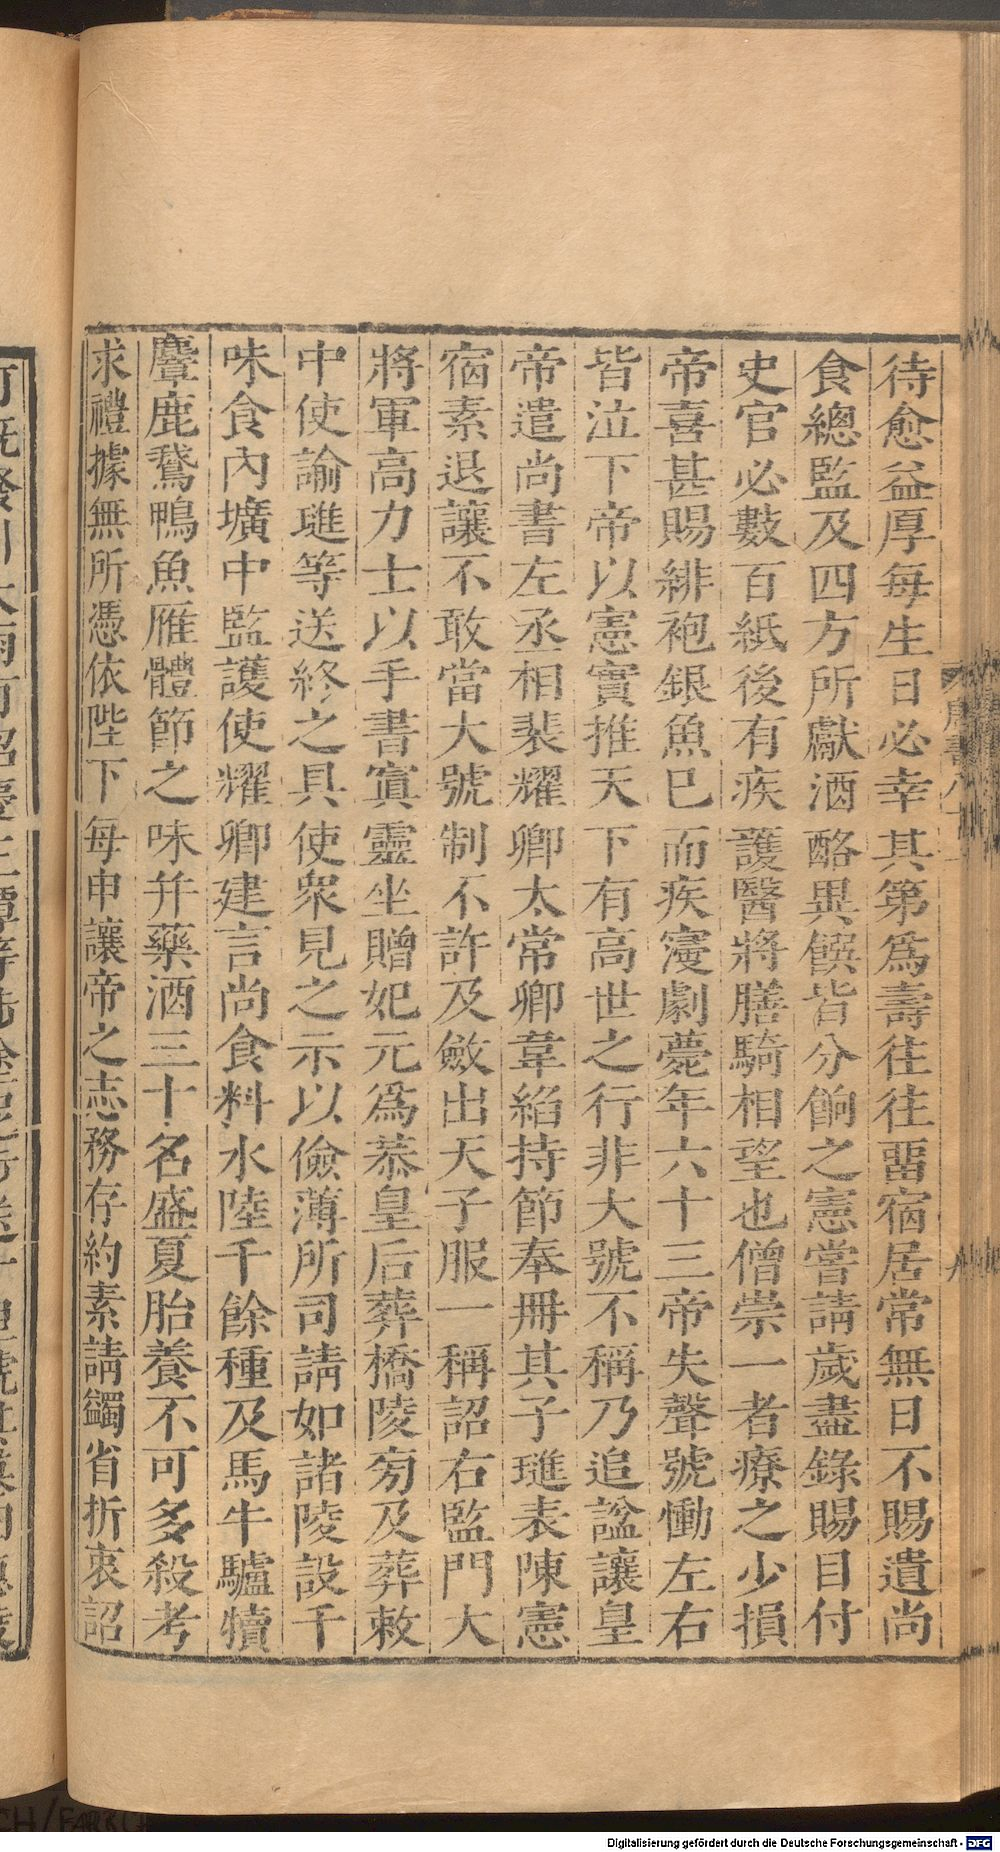 待愈益厚每生日必幸其第爲壽往往畱宿居常無日不賜遺尚
食總監及四方所獻酒酪異饌皆分餉之憲嘗請歲盡錄賜目付
史官必數百紙後有疾護醫將膳騎相望也僧崇一者療之少損
帝喜甚賜緋袍銀魚巳而疾寖劇薨年六十三帝失聲號慟左右
皆泣下帝以憲實推天下有高世之行非大號不稱乃追諡讓皇
帝遣尚書左丞相裴耀卿太常卿韋縚持節奉冊其子璡表陳憲
宿素退讓不敢當大號制不許及斂出天子服一稱詔右監門大
將軍高力士以手書寘靈坐贈妃元爲恭皇后葬橋陵旁及葬敕
中使諭璡等送終之具使衆見之示以儉薄所司請如諸陵設千
味食內壙中監護使耀卿建言尚食料水陸千餘種及馬牛驢犢
麞鹿鵞鴨魚雁體節之味幷藥酒三十名盛夏胎養不可多殺考
求禮據無所憑依陛下每申讓帝之志務存約素請蠲省折衷詔
Digitalisierung gefördert durch die Deutsche Forschungsgemeinschaft - DFG